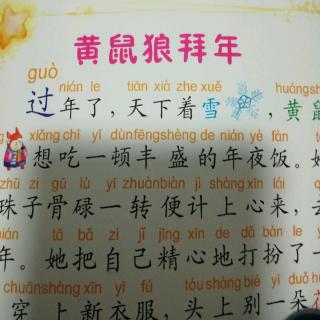 黄鼠狼拜年
guò
nián le tiān xià zhe xuě huángsh
过年了，天下着雪，黄鼠
xiǎng chī yī dùnfēngshèng de nián yè fàn
想吃一顿丰盛的年夜饭。她
zhū zi gū lù yī zhuànbiàn jì shàng xīn lái
珠子骨碌一转便计上心来，去
nián tā bǎ zì jǐ jīng xīn de dǎ bàn le yī
年。她把自己精心地打扮了一
chuānshàng xīn yī fú tóu shàng bié yī duǒ
穿上新衣服，头上别一朵花